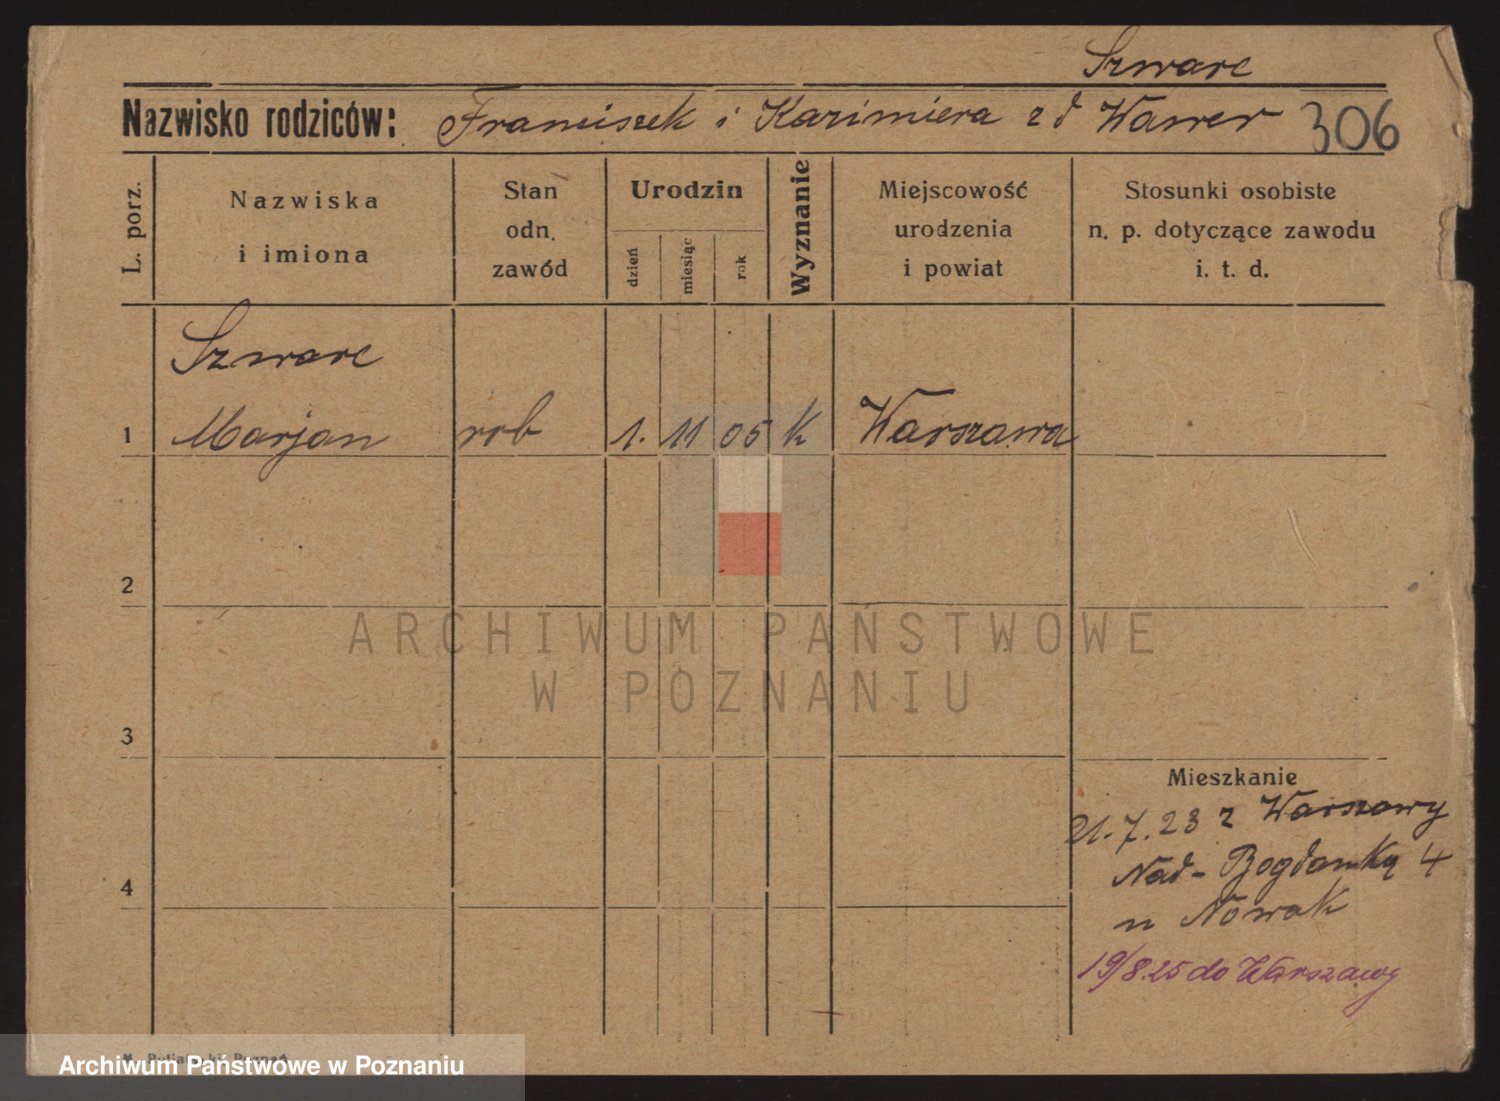 Szwarc
Nazwisko rodziców: Franciszek i Kazimiera z d Wawer 306
L. porz.
Nazwiska
i imiona
Stan
odn.
zawód
Urodzin
dzień
miesiąc
rok
Wyznanie
Miejscowość
urodzenia
i powiat
Stosunki osobiste
n. p. dotyczące zawodu
i. t. d.
Szwarc
1 Marjan rob 1. 11 05 K Warszawa
2
ARCHIWUM PAŃSTWOWE
W POZNANIU
3
Mieszkanie
21.7.23 z Warszawy
Nad-Bogdanką 4
4
u Nowak
19/8.25 do Warszawy
Archiwum Państwowe w Poznaniu